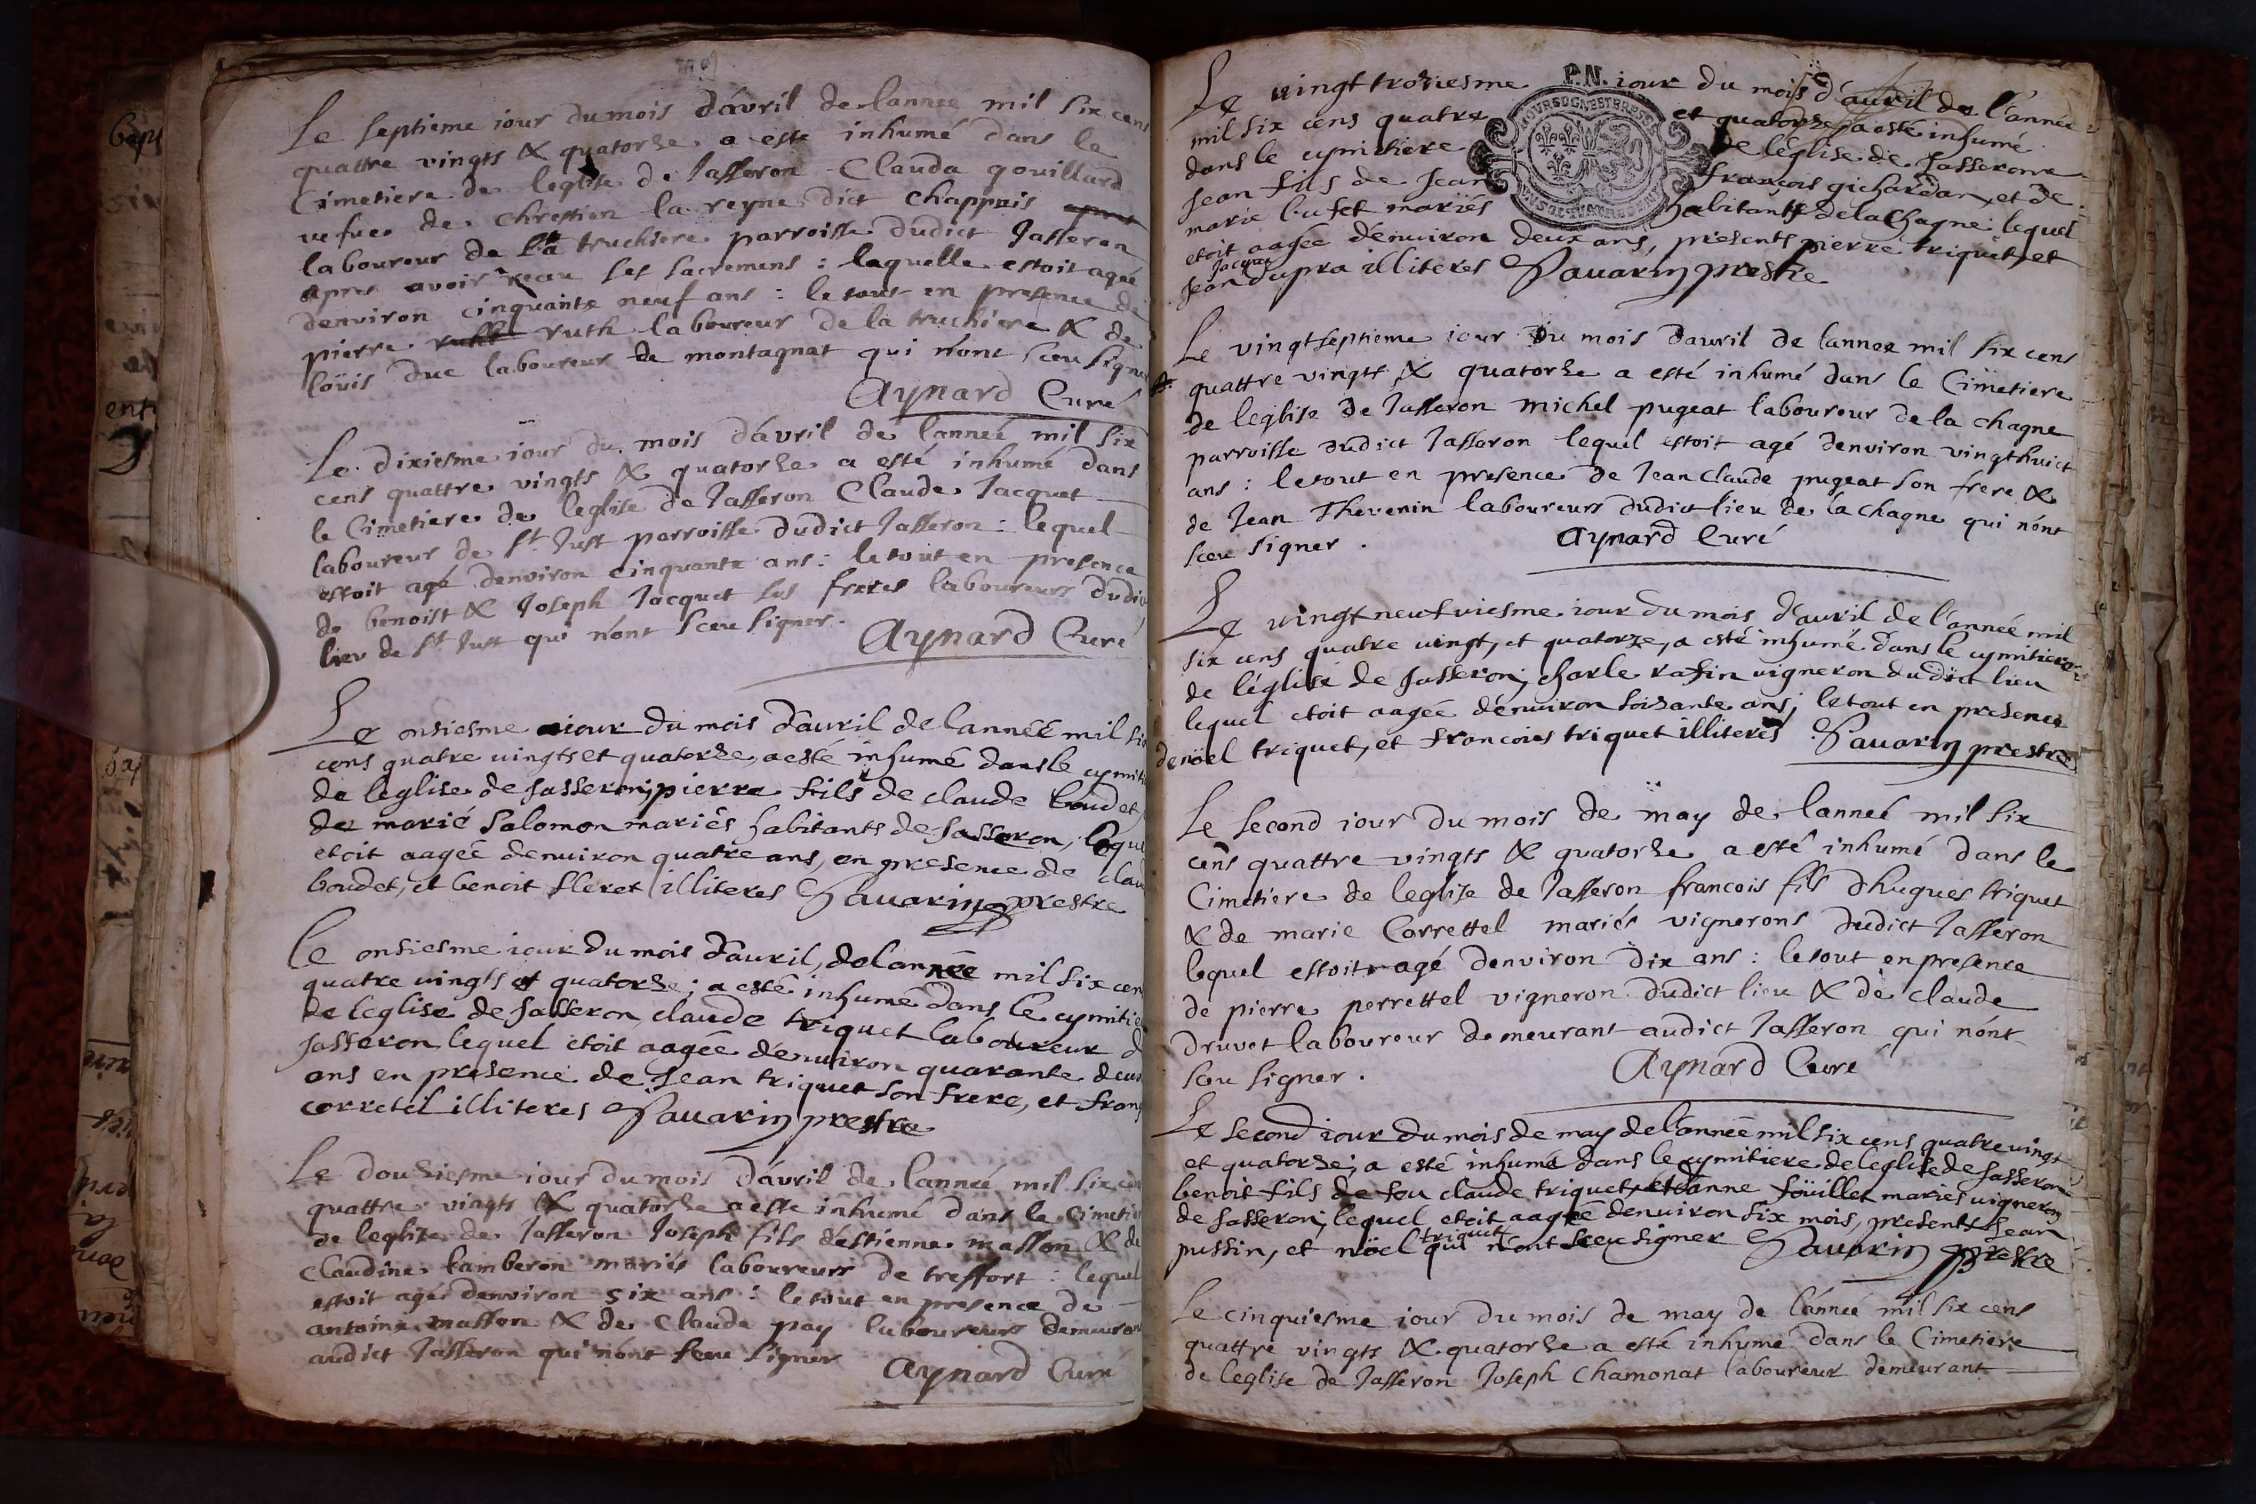 Le septieme iour du mois d'avril de lannee mil six cens
quattre vingts & quatorze a esté inhumé dans le
Cimetiere de leglise de Jasseron Clauda gouillard
vefue de chrestien la reyne dict chappuis
laboureur de la truchiere parroisse dudict Jasseron
apres avoir receu ses sacremens : laquelle estoit agée
denviron cinquante neuf ans : le tout en presence de
pierre ruth laboureur de la truchiere & de
loüis duc laboureur de montagnat qui n'ont sceu signer
Aynard Curé
Le dixiesme iour du mois d'avril de lanneé mil six
cens quattre vingts & quatorze a esté inhumé dans
le Cimetiere de leglise de Jasseron Claude Jacquet
laboureur de St Just parroisse dudict Jasseron : lequel
estoit agé denviron cinquante ans : le tout en presence
de benoist & Joseph Jacquet ses freres laboureurs dudi
lieu de St Just qui n'ont sceu signer.
Aynard Curé
Le onsiesme iour du mois d'auril de l'année mil six
cens quatre uingts et quatorze, a esté inhumé dans le cymiti
de leglise de Jasseron; pierre fils de claude boudet,
de marié Salomon mariés habitants de Jasseron, leque
etoit aageé denuiron quatre ans, en presence de clau
boudet, et benoit illiteres Sauarin prestre
Le onsiesme iour du mois d'auril, de l'année mil six cen
quatre uingts et quatorze; a esté inhumé dans le cymitie
de leglise de Jasseron claude triquet laboureur d
Jasseron lequel étoit aageé d'enuiron quarante deux
ans en presence de Jean triquet son frere, et fran
corretel illiteres Sauarin prestre
Le douziesme iour du mois d'avril de lanneé mil six cen
quattre vingts & quatorze a este inhumé dans le Cimetie
de leglise de Jasseron Joseph fils d'estienne masson & de
Claudine tamberon mariés laboureurs de treffort : lequel
estoit agé denviron six ans : le tout en presence de
antoine masson & de Claude pay laboureurs demeuran
audict Jasseron qui n'ont sceu signer
Aynard Curé
P.N.
Le uingt troisiesme iour du mois d'auril de l'année
mil six cens quatre et quatorze a esté inhumé
dans le cymitiere de léglise de Jasseron
Jean fils de Jean françois gichardan, et de
marie bufet mariés habitants de la Chagne lequel
etoit aageé d'enuiron deux ans, presents pierre triquet, et
Jean Jacque dupra illiteres Sauarin prestre
Le vingtseptieme iour du mois d'avril de lannee mil six cens
quattre vingts & quatorze a esté inhumé dans le Cimetiere
de leglise de Jasseron michel pugeat laboureur de la chagne
parroisse dudict Jasseron lequel estoit agé denviron vingthuict
ans : le tout en presence de Jean Claude pugeat son frere &
de Jean Thevenin laboureurs dudict lieu de la chagne qui n'ont
sceu signer.
Aynard Curé
Le vingt neufviesme iour du mois d'auril de l'année mil
six cens quatre uingt, et quatorze, a esté inhumé dans le cymitiere
de léglise de Jasseron; charle rafin uigneron dudict lieu
lequel etoit aageé d'enuiron soixante ans; le tout en presence
de nöel triquet, et francois triquet illiteres Sauarin prestre
Le second iour du mois de may de lanneé mil six
cens quattre vingts & quatorze a esté inhumé dans le
Cimetiere de leglise de Jasseron francois fils d'hugues triquet
& de marie Correttel mariés vignerons dudict Jasseron
lequel estoit agé denviron dix ans : le tout en presence
de pierre perrettel vigneron dudict lieu & de claude
druvet laboureur demeurant audict Jasseron qui n'ont
sceu signer.
Aynard Curé
Le second iour du mois de may de l'année mil six cens quatre vingt
et quatorze; a esté inhumé dans le cymitiere de leglise de Jasseron
benoit fils de feu claude triquet, et d'anne foüillet mariés uigneron
de Jasseron; lequel etoit aageé denuiron six mois, presents Jean
pussin, et nöel triquet qui n'ont sceu signer Sauarin prestre
Le cinquiesme iour du mois de may de l'anneé mil six cens
quattre vingts & quatorze a esté inhumé dans le Cimetiere
de leglise de Jasseron Joseph Chamonat laboureur demeurant